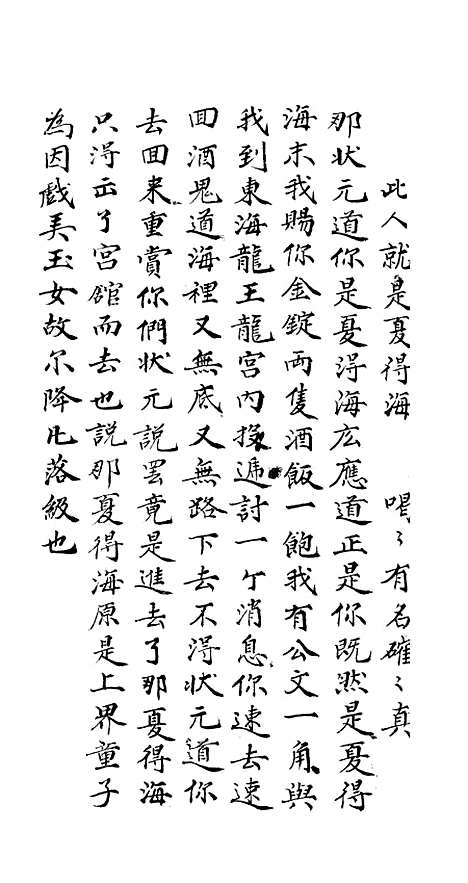 此人就是夏得海 喝〻有名確〻真
那状元道你是夏得海広應道正是你既然是夏得
海末我賜你金錠両隻酒飯一飽我有公文一角與
我到東海龍王龍宫内投遞討一个消息你速去速
回酒鬼道海裡又無底又無路下去不得状元道你
去回来重賞你們状元説罢竟是進去了那夏得海
只得出了宫舘而去也説那夏得海原是上界童子
為因戲美玉女故尓降凡落級也